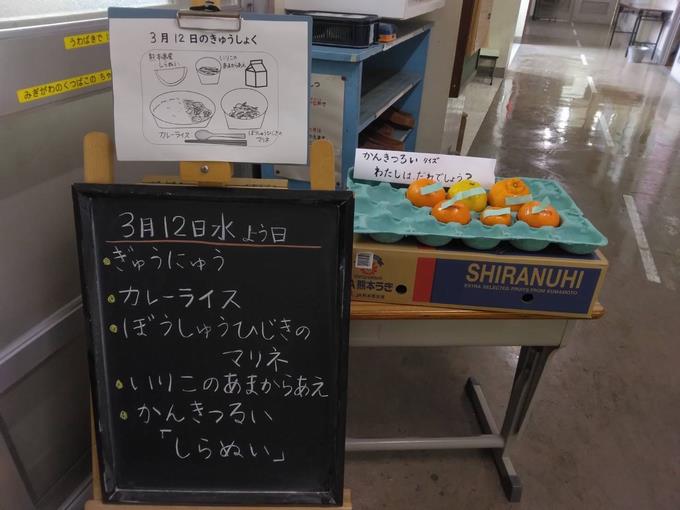 うわばきで
みぎがわのくつばこの
3月12日のきゅうしょく
熊本県産
しらぬい
いりこの
あまからあえ
カレーライス
ぼうしゅうひじきの
マリネ
かんきつるい クイズ
わたしは、だれでしょう?
3月12日水よう日
ぎゅうにゅう
カレーライス
ぼうしゅうひじきの
マリネ
いりこのあまからあえ
かんきつるい
「しらぬい」
JA熊本うき
SHIRANUHI
EXTRA SELECTED FRUITS FROM KUMAMOTO